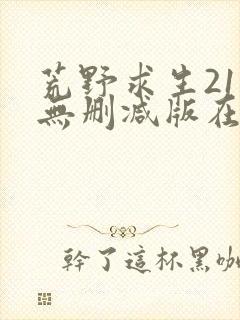 荒野求生21
無刪減版在
幹了這杯黑咖